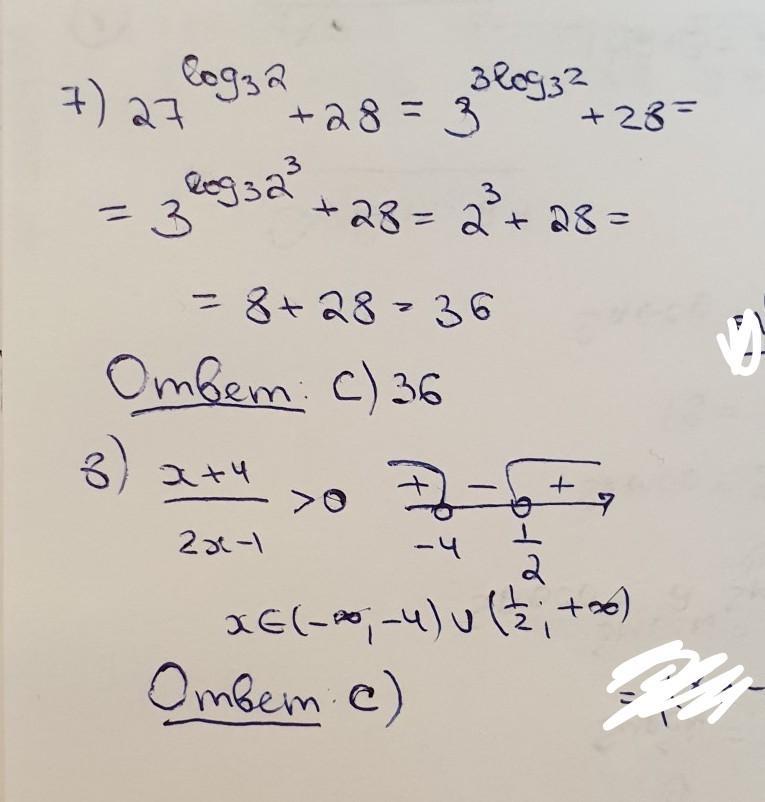 7) 27^(log₃2) + 28 = 3^(3log₃2) + 28 =
= 3^(log₃2³) + 28 = 2³ + 28 =
= 8 + 28 = 36
Ответ: С) 36
8) (x+4)/(2x-1) > 0   + - +
-4   1/2
x∈(-∞; -4) ∪ (1/2; +∞)
Ответ: С)